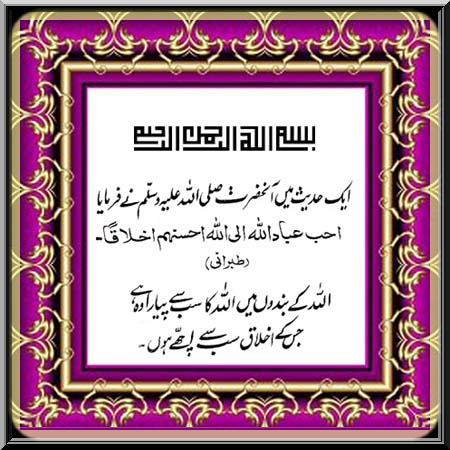 بسم الله الرحمن الرحيم
ایک حدیث میں آنحضرت صلی اللہ علیہ وسلم نے فرمایا
احب عباد الله الى الله احسنهم اخلاقًا۔
(طبرانی)
اللہ کے بندوں میں اللہ کا سب سے پیارا وہ ہے
جس کے اخلاق سب سے اچھے ہوں ۔